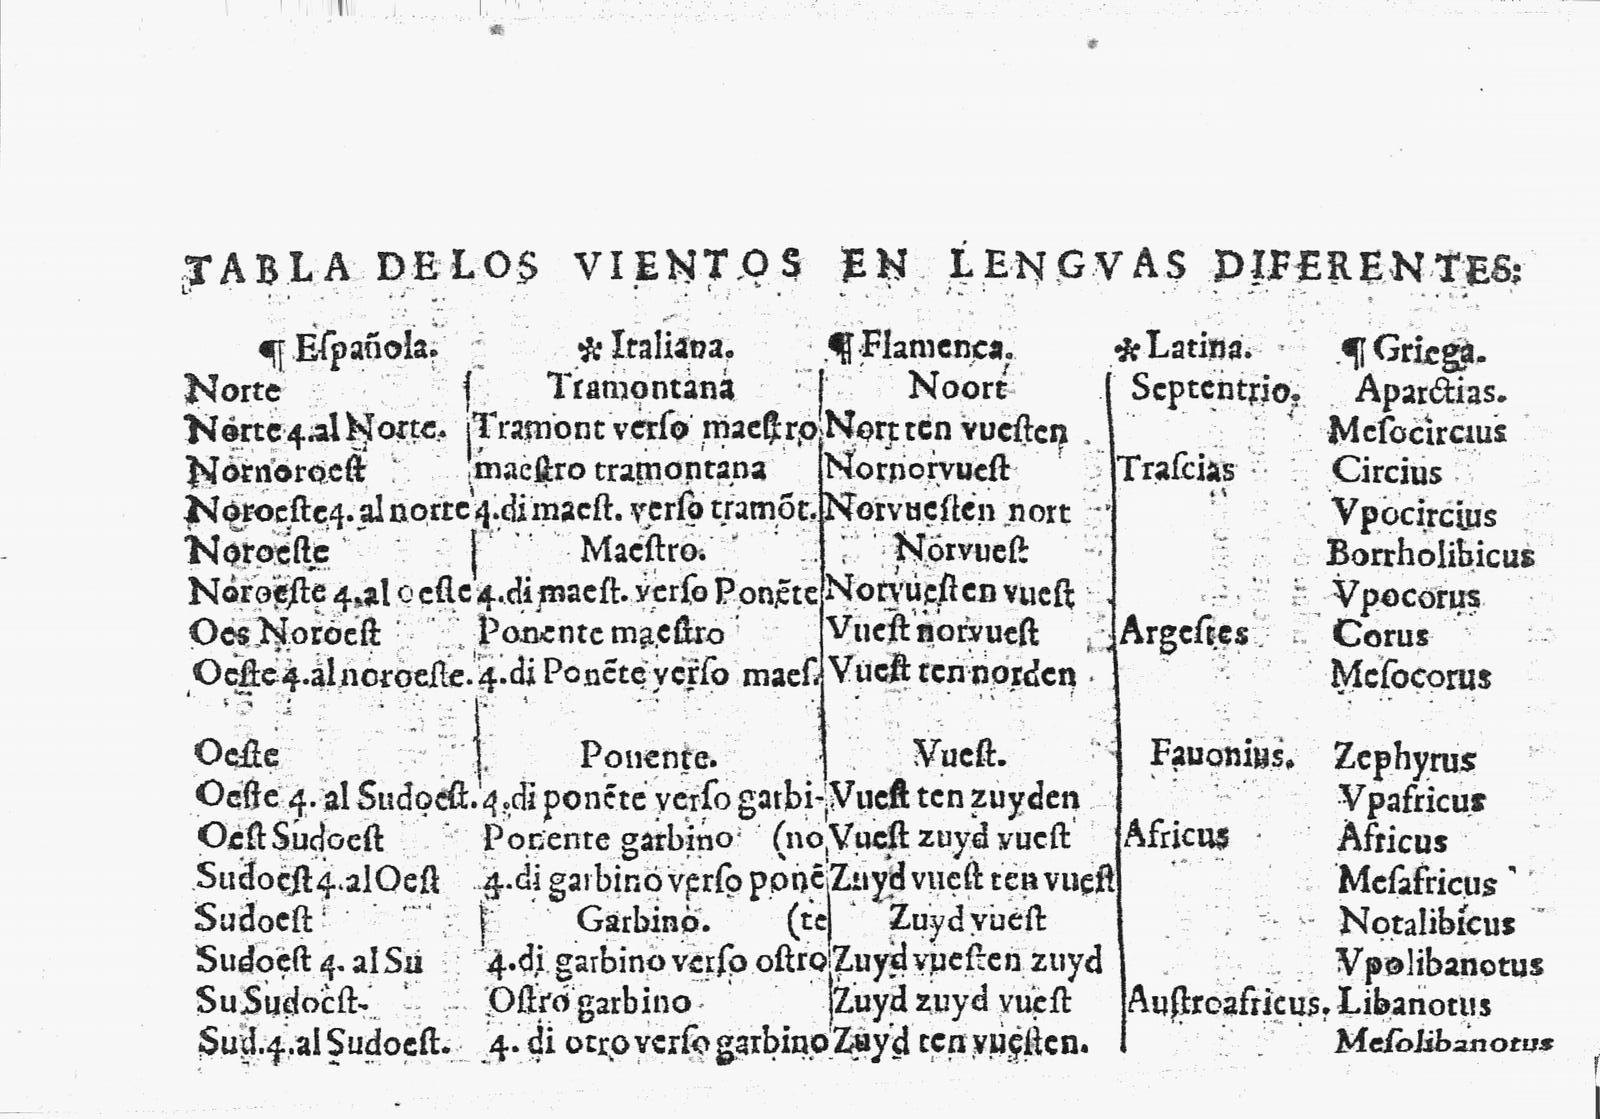 TABLA DE LOS VIENTOS EN LENGVAS DIFERENTES:
¶ Eſpañola. * Italiana. ¶ Flamenca. * Latina. ¶ Griega.
Norte Tramontana Noort Septentrio. Aparctias.
Norte 4. al Norte. Tramont verſo maeſtro Nort ten vueſten Meſocircius
Nornoroeſt maeſtro tramontana Nornorvueſt Traſcias Circius
Noroeſte 4. al norte 4. di maeſt. verſo tramõt. Norvueſten nort Vpocircius
Noroeſte Maeſtro. Norvueſt Borrholibicus
Noroeſte 4. al oeſte 4. di maeſt. verſo Ponẽte Norvueſten vueſt Vpocorus
Oes Noroeſt Ponente maeſtro Vueſt norvueſt Argeſtes Corus
Oeſte 4. al noroeſte. 4. di Ponẽte verſo maeſ. Vueſt ten norden Meſocorus
Oeſte Ponente. Vueſt. Fauonius. Zephyrus
Oeſte 4. al Sudoeſt. 4. di ponẽte verſo garbi- Vueſt ten zuyden Vpafricus
Oeſt Sudoeſt Ponente garbino (no Vueſt zuyd vueſt Africus Africus
Sudoeſt 4. al Oeſt 4. di garbino verſo ponẽ Zuyd vueſt ten vueſt Meſafricus
Sudoeſt Garbino. (te Zuyd vueſt Notalibicus
Sudoeſt 4. al Su 4. di garbino verſo oſtro Zuyd vueſten zuyd Vpolibanotus
Su Sudoeſt- Oſtro garbino Zuyd zuyd vueſt Auſtroafricus. Libanotus
Sud. 4. al Sudoeſt. 4. di otro verſo garbino Zuyd ten vueſten. Meſolibanotus